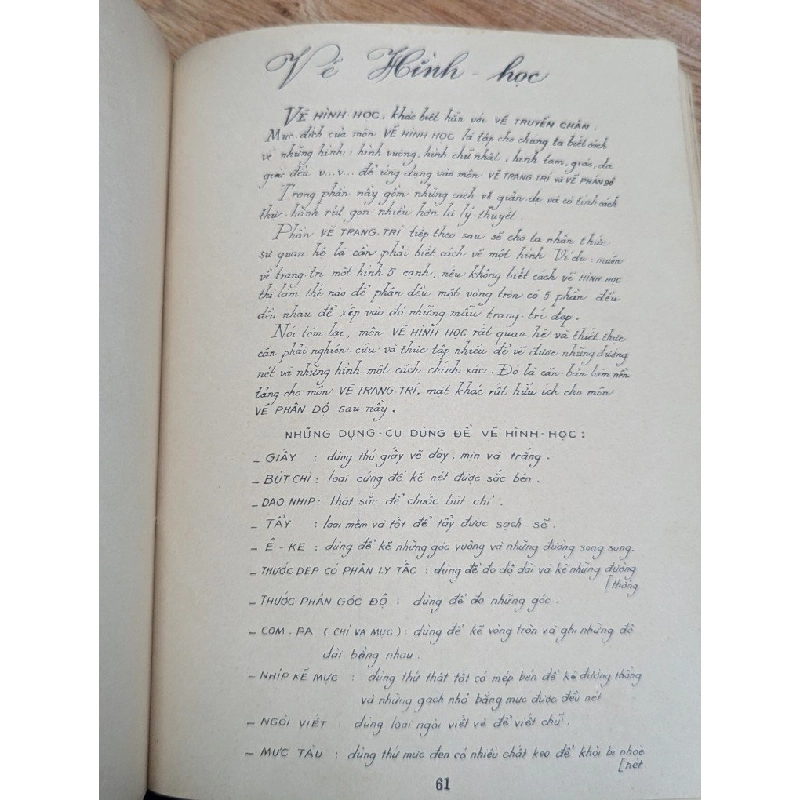 Vẽ Hình-học
VẼ HÌNH-HỌC, khác biệt hẳn với VẼ TRUYỀN CHÂN.
Mục-đích của môn VẼ HÌNH HỌC là tập cho chúng ta biết cách
vẽ những hình: hình vuông, hình chữ nhật, hình tam giác, đa
giác đều v...v... để ứng dụng vào môn VẼ TRANG TRÍ và VẼ PHÂN ĐỘ
Trong phần này gồm những cách vẽ giản-dị và có tính cách
thực-hành rút gọn nhiều hơn là lý thuyết.
Phần VẼ TRANG-TRÍ tiếp theo sau sẽ cho ta nhận thức
sự quan hệ là cần phải biết cách vẽ một hình. Ví dụ: muốn
vẽ trang-trí một hình 5 cạnh, nếu không biết cách vẽ HÌNH HỌC
thì làm thế nào để phân đều một vòng tròn có 5 phần đều
đều nhau để xếp vào đó những mẫu trang-trí đẹp.
Nói tóm lại, môn VẼ HÌNH HỌC rất quan hệ và thiết thực
cần phải nghiên cứu và thực tập nhiều để vẽ được những đường
nét và những hình một cách chính xác. Đó là căn bản làm nền
tảng cho môn VẼ TRANG-TRÍ, mặt khác rất hữu ích cho môn
VẼ PHÂN ĐỘ sau nầy.
NHỮNG DỤNG-CỤ DÙNG ĐỂ VẼ HÌNH-HỌC:
- GIẤY : dùng thứ giấy vẽ dày, mịn và trắng.
- BÚT CHÌ : loại cứng để kẻ nét được sắc bén.
- DAO NHÍP: thật sắc để chuốc bút chì.
- TẨY : loại mềm và tốt để tẩy được sạch sẽ.
- Ê-KE : dùng để kẻ những góc vuông và những đường song song.
- THƯỚC DẸP CÓ PHÂN LY TẤC : dùng để đo độ dài và kẻ những đường
[thẳng
- THƯỚC PHÂN GÓC ĐỘ : dùng để đo những góc.
- COM-PA (CHÌ VÀ MỰC): dùng để kẻ vòng tròn và ghi những độ
dài bằng nhau.
- NHÍP KẺ MỰC : dùng thứ thật tốt có mép bén để kẻ đường thẳng
và những gạch nhỏ bằng mực được đều nét
- NGÒI VIẾT : dùng loại ngòi viết vẽ để viết chữ.
- MỰC TÀU : dùng thứ mực đen có nhiều chất keo để khỏi bị nhòe
[nét
61